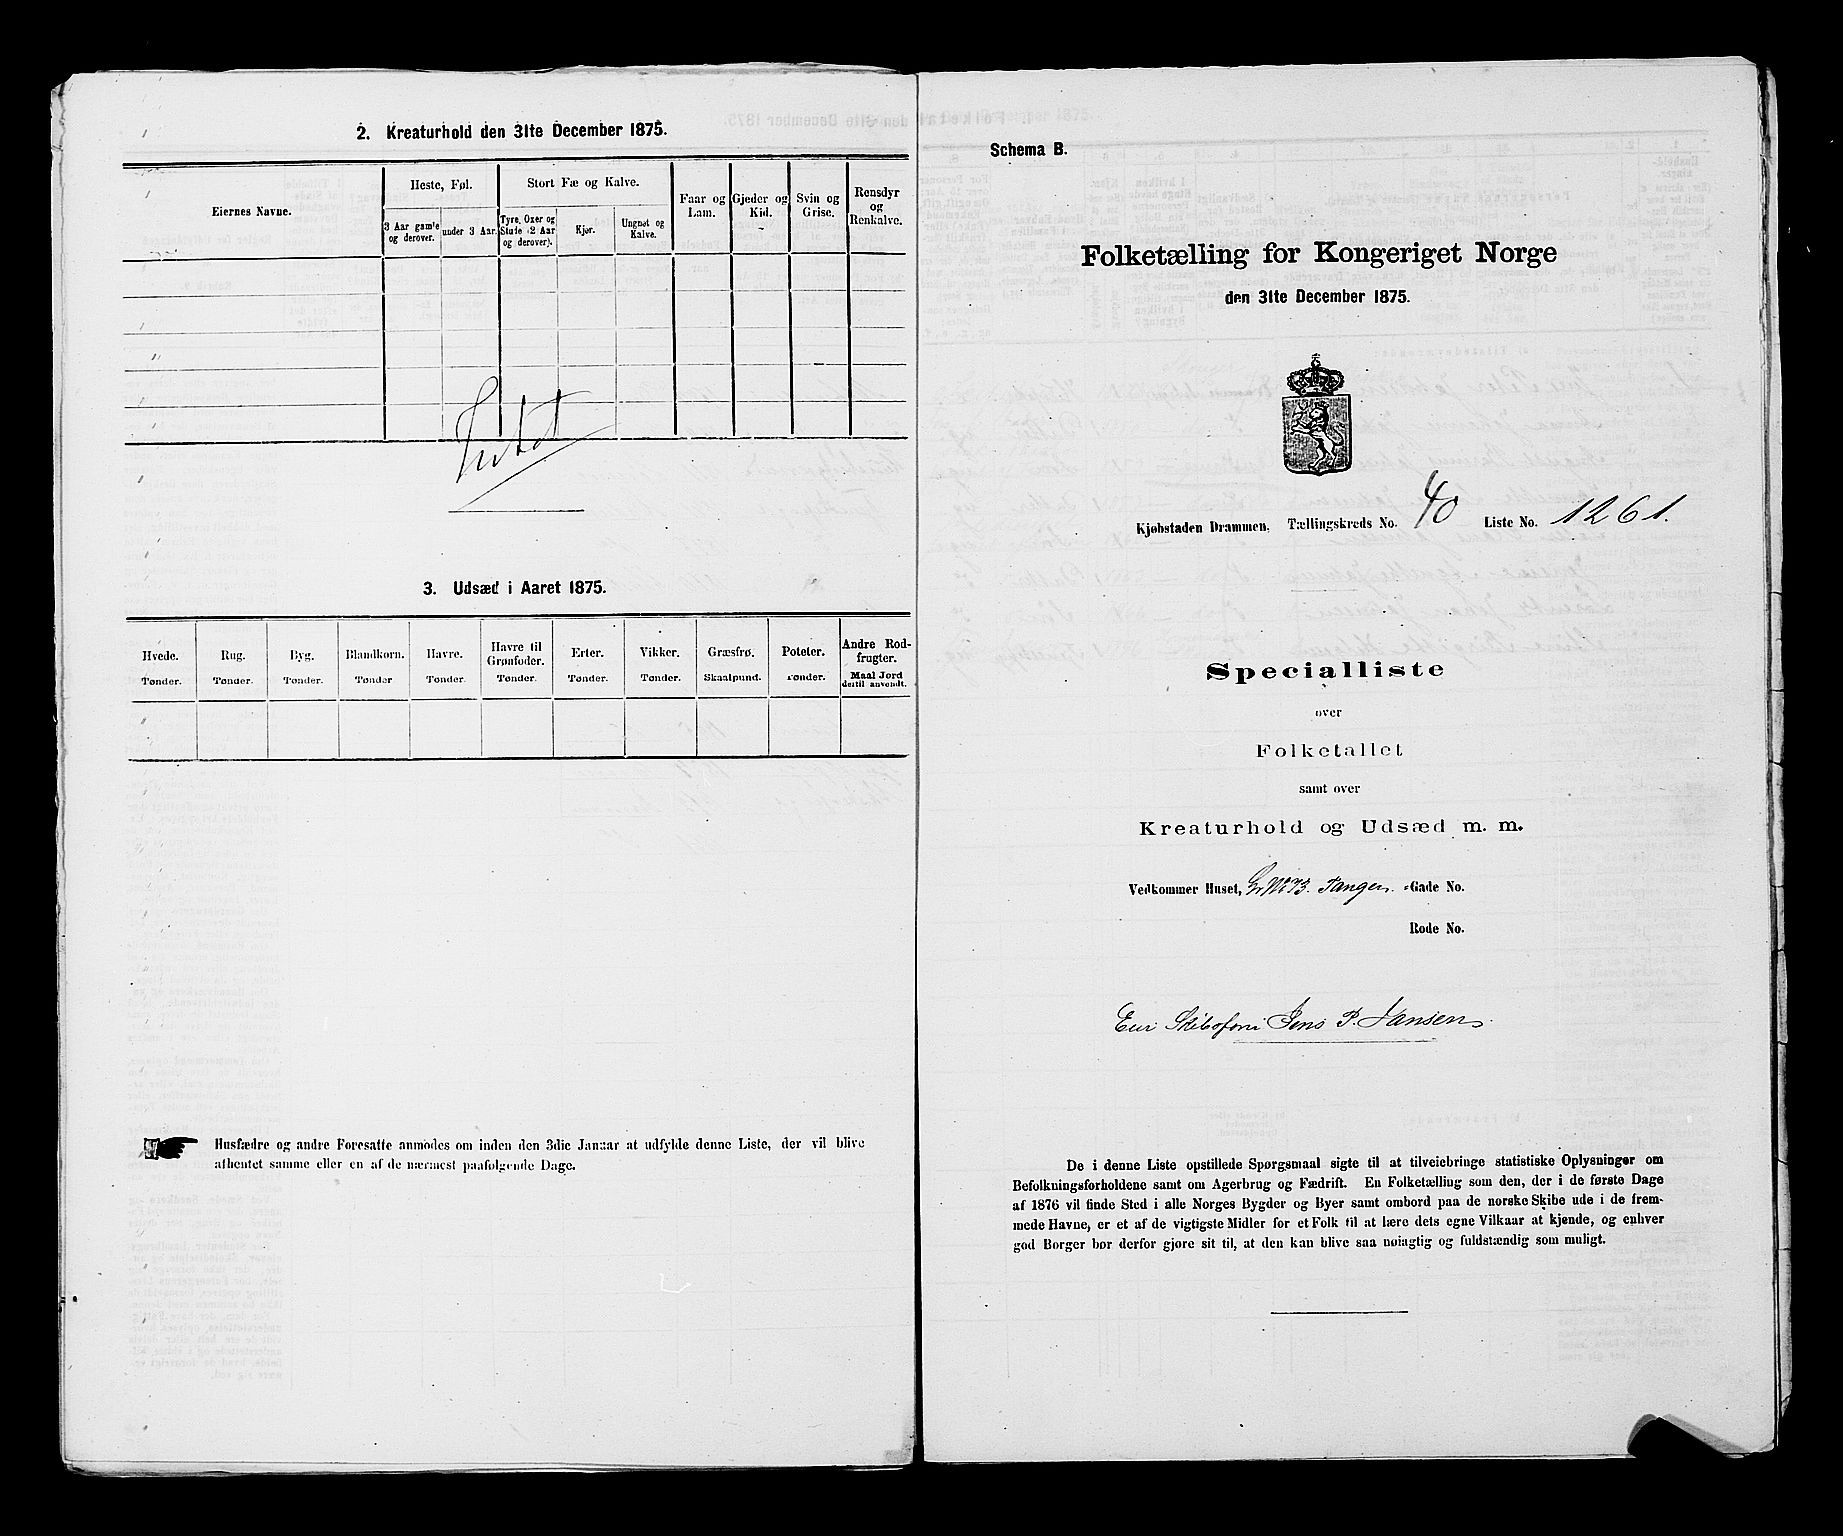 2. Kreaturhold den 31te December 1875.
Eiernes Navne.
Heste, Føl.
Stort Fæ og Kalve.
Faar og Lam.
Gjeder og Kid.
Svin og Grise.
Rensdyr og Renkalve.
3 Aar gamle og derover.
under 3 Aar.
Tyre, Oxer og Stude (2 Aar og derover).
Kjør.
Ungnøt og Kalve.
Intet
3. Udsæd i Aaret 1875.
Hvede. Rug. Byg. Blandkorn. Havre. Havre til Grønfoder. Erter. Vikker. Græsfrø. Poteter. Andre Rodfrugter.
Tønder. Tønder. Tønder. Tønder Tønder. Tønder. Tønder. Tønder. Skaalpund. Tønder. Maal Jord dertil anvendt.
Husfædre og andre Foresatte anmodes om inden den 3die Januar at udfylde denne Liste, der vil blive
afhentet samme eller en af de nærmest paafølgende Dage.
Schema B.
Folketælling for Kongeriget Norge
den 31te December 1875.
Kjøbstaden Drammen. Tællingskreds No. 40 Liste No. 1261.
Specialliste
over
Folketallet
samt over
Kreaturhold og Udsæd m. m.
Vedkommer Huset, Gr No 73. Tangen. -Gade No.
Rode No.
Jens P. Jansen
De i denne Liste opstillede Spørgsmaal sigte til at tilveiebringe statistiske Oplysninger om
Befolkningsforholdene samt om Agerbrug og Fædrift. En Folketælling som den, der i de første Dage
af 1876 vil finde Sted i alle Norges Bygder og Byer samt ombord paa de norske Skibe ude i de frem-
mede Havne, er et af de vigtigste Midler for et Folk til at lære dets egne Vilkaar at kjende, og enhver
god Borger bør derfor gjøre sit til, at den kan blive saa nøiagtig og fuldstændig som muligt.